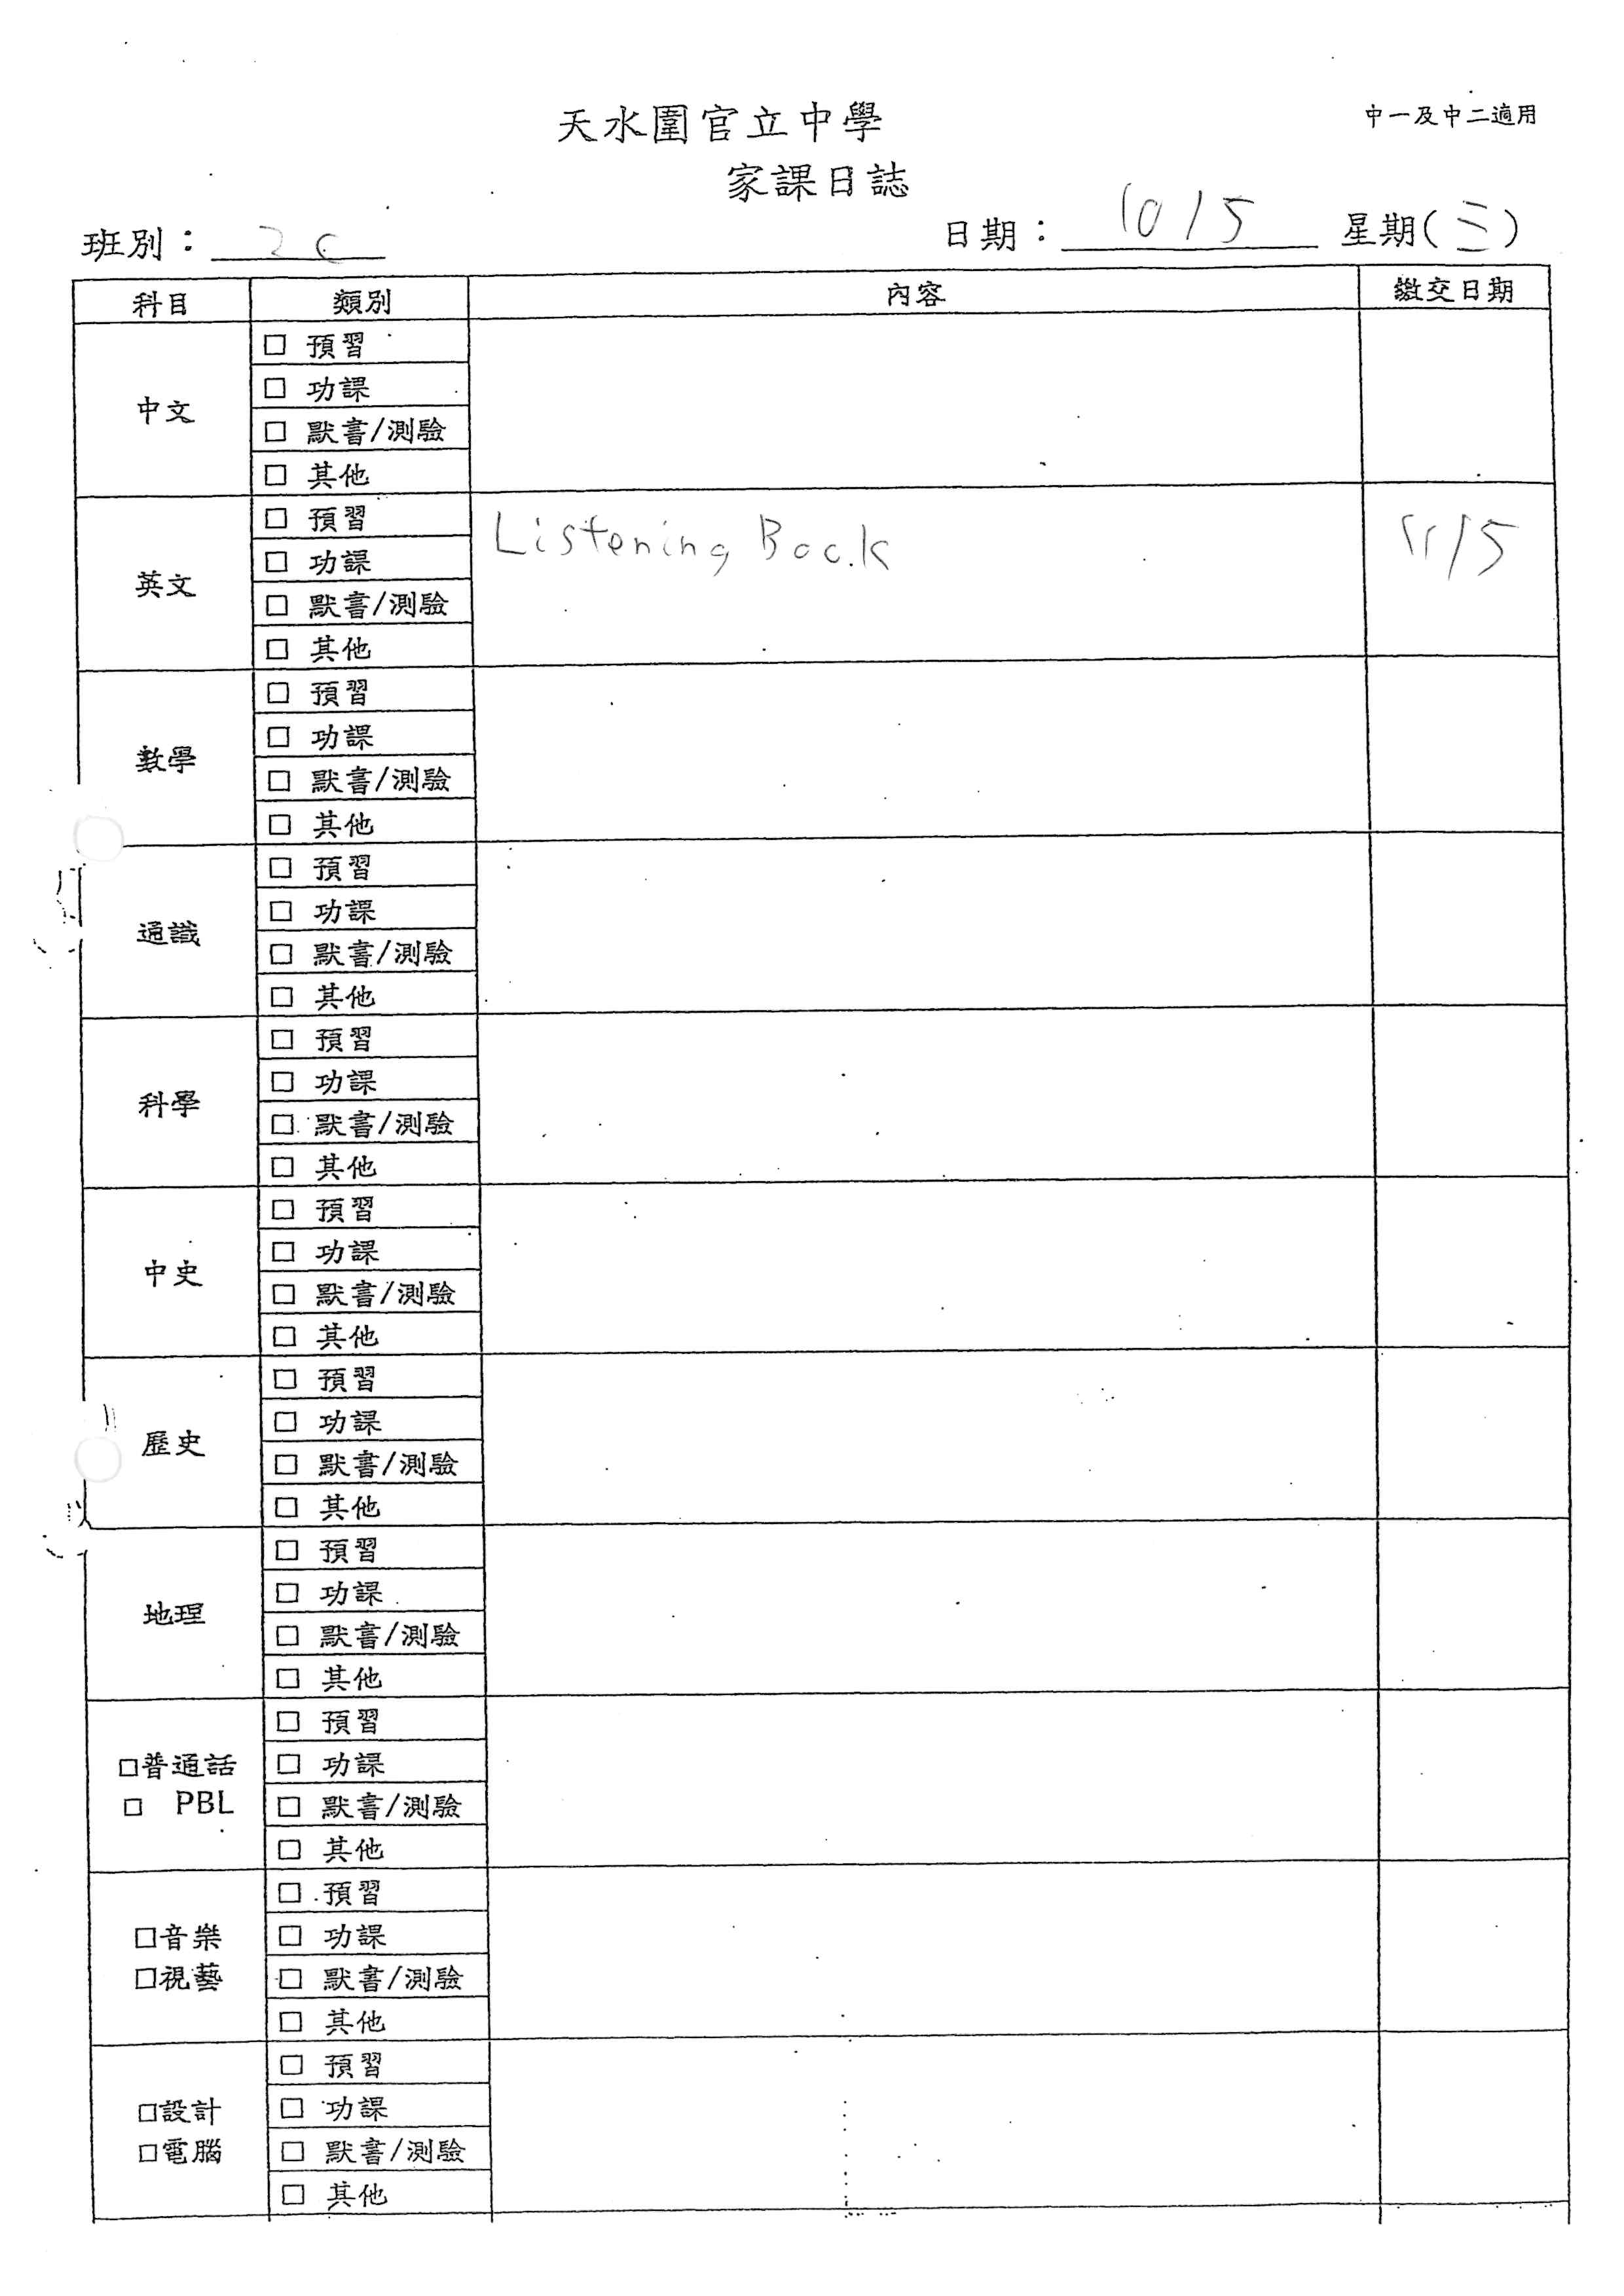 天水圍官立中學
中一及中二適用
家課日誌
班別：2C 日期：10/5 星期(三)
科目 類別 內容 繳交日期
中文
□ 預習
□ 功課
□ 默書/測驗
□ 其他
英文
□ 預習 Listening Book 11/5
□ 功課
□ 默書/測驗
□ 其他
數學
□ 預習
□ 功課
□ 默書/測驗
□ 其他
通識
□ 預習
□ 功課
□ 默書/測驗
□ 其他
科學
□ 預習
□ 功課
□ 默書/測驗
□ 其他
中史
□ 預習
□ 功課
□ 默書/測驗
□ 其他
歷史
□ 預習
□ 功課
□ 默書/測驗
□ 其他
地理
□ 預習
□ 功課
□ 默書/測驗
□ 其他
□普通話
□ PBL
□ 預習
□ 功課
□ 默書/測驗
□ 其他
□音樂
□視藝
□ 預習
□ 功課
□ 默書/測驗
□ 其他
□設計
□電腦
□ 預習
□ 功課
□ 默書/測驗
□ 其他